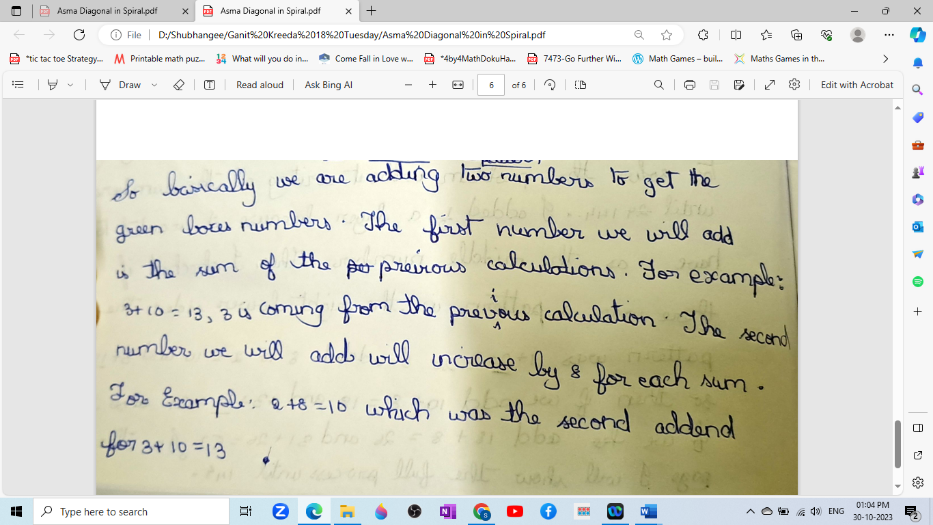 Asma Diagonal in Spiral.pdf
Asma Diagonal in Spiral.pdf
File D:/Shubhangee/Ganit%20Kreeda%2018%20Tuesday/Asma%20Diagonal%20in%20Spiral.pdf
*tic tac toe Strategy... Printable math puz... What will you do in... Come Fall in Love w... *4by4MathDokuHa... 7473-Go Further Wi... Math Games – buil... Maths Games in th...
Draw Read aloud Ask Bing AI 6 of 6 Edit with Acrobat
So basically we are adding two numbers to get the
green boxes numbers. The first number we will add
is the sum of the previous calculations. For example:
3+10=13, 3 is coming from the previous calculation. The second
number we will add will increase by 8 for each sum.
For Example: 2+8=10 which was the second addend
for 3+10=13
Type here to search
ENG
01:04 PM
30-10-2023
2